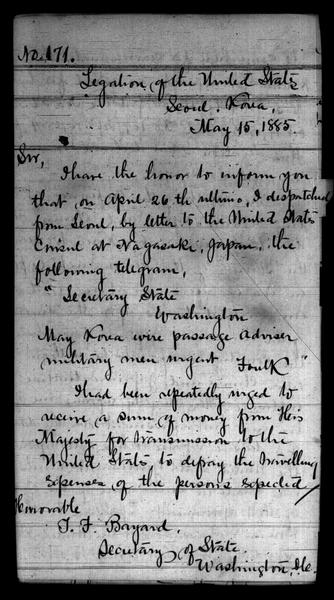 No. 171.
Legation of the United States
Seoul, Korea,
May 15, 1885.
Sir,
I have the honor to inform you
that on April 26th ultimo, I despatched
from Seoul, by letter to the United States
Consul at Nagasaki, Japan, the
following telegram,
"Secretary State
Washington
May Korea wire passage adviser
military men urgent Foulk"
I had been repeatedly urged to
receive a sum of money from His
Majesty for transmission to the
United States, to defray the travelling
expenses of the persons expected,
Honorable
T. F. Bayard,
Secretary of State.
Washington, D.C.